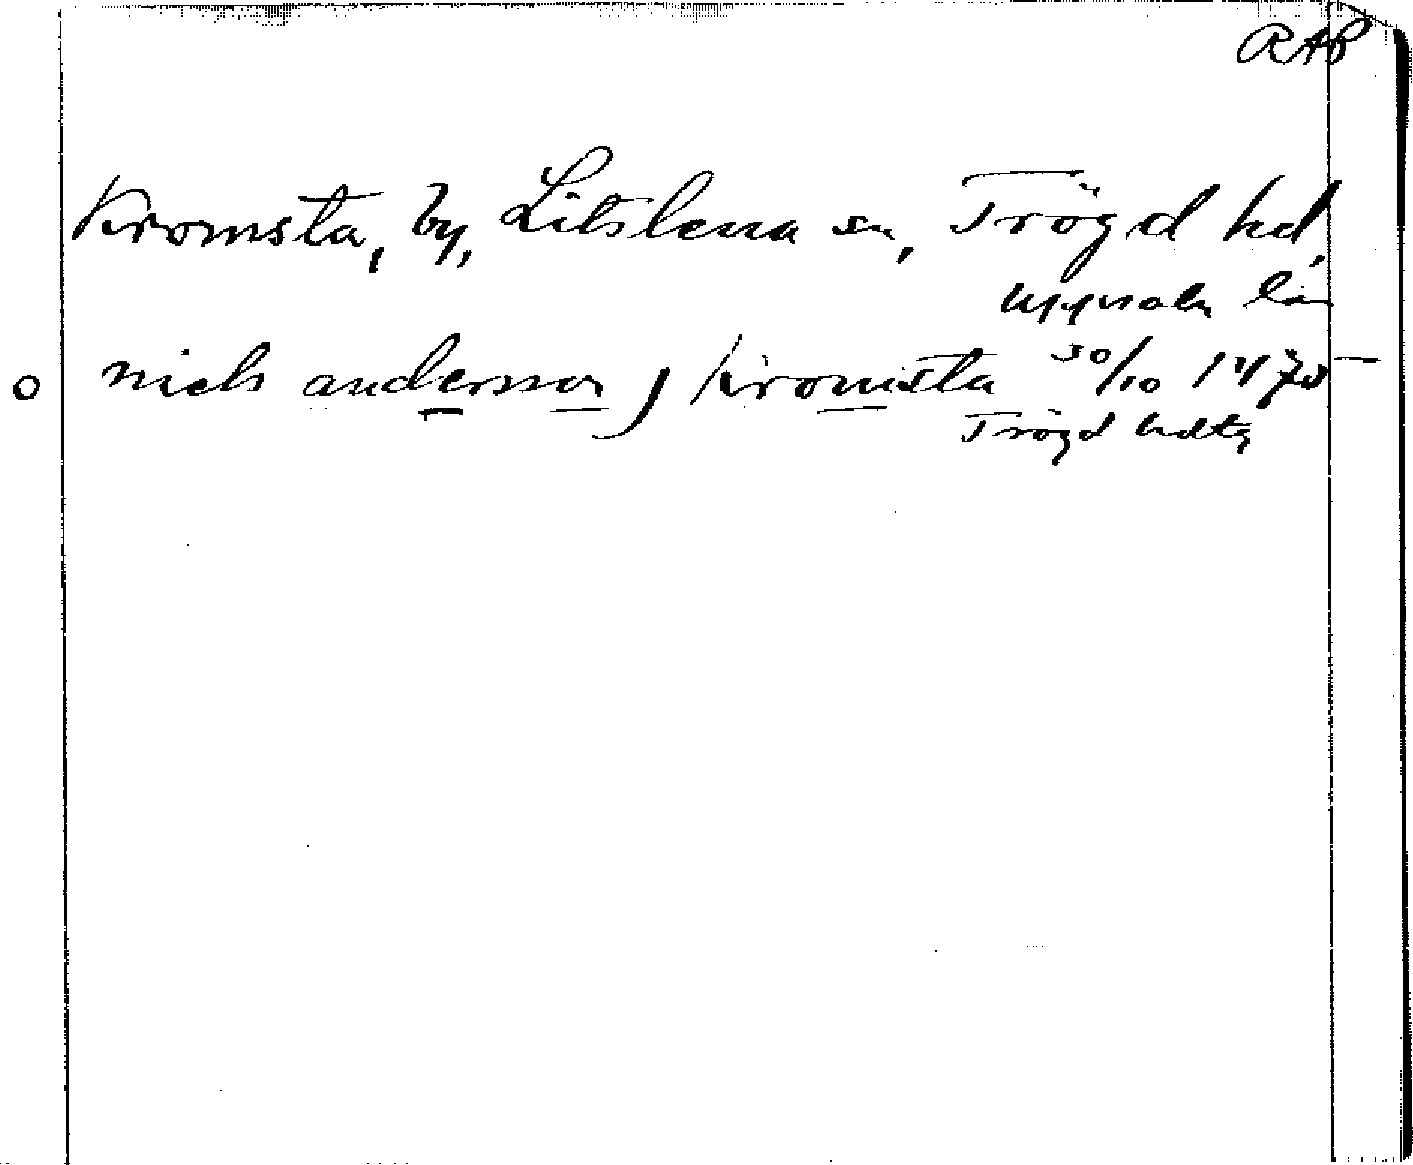 RAP
Kromsta, by, Litslena sn, Trögd hd,
Uppsala län
o niels andersson j kromsta 30/10 1470
Trögd hdtg